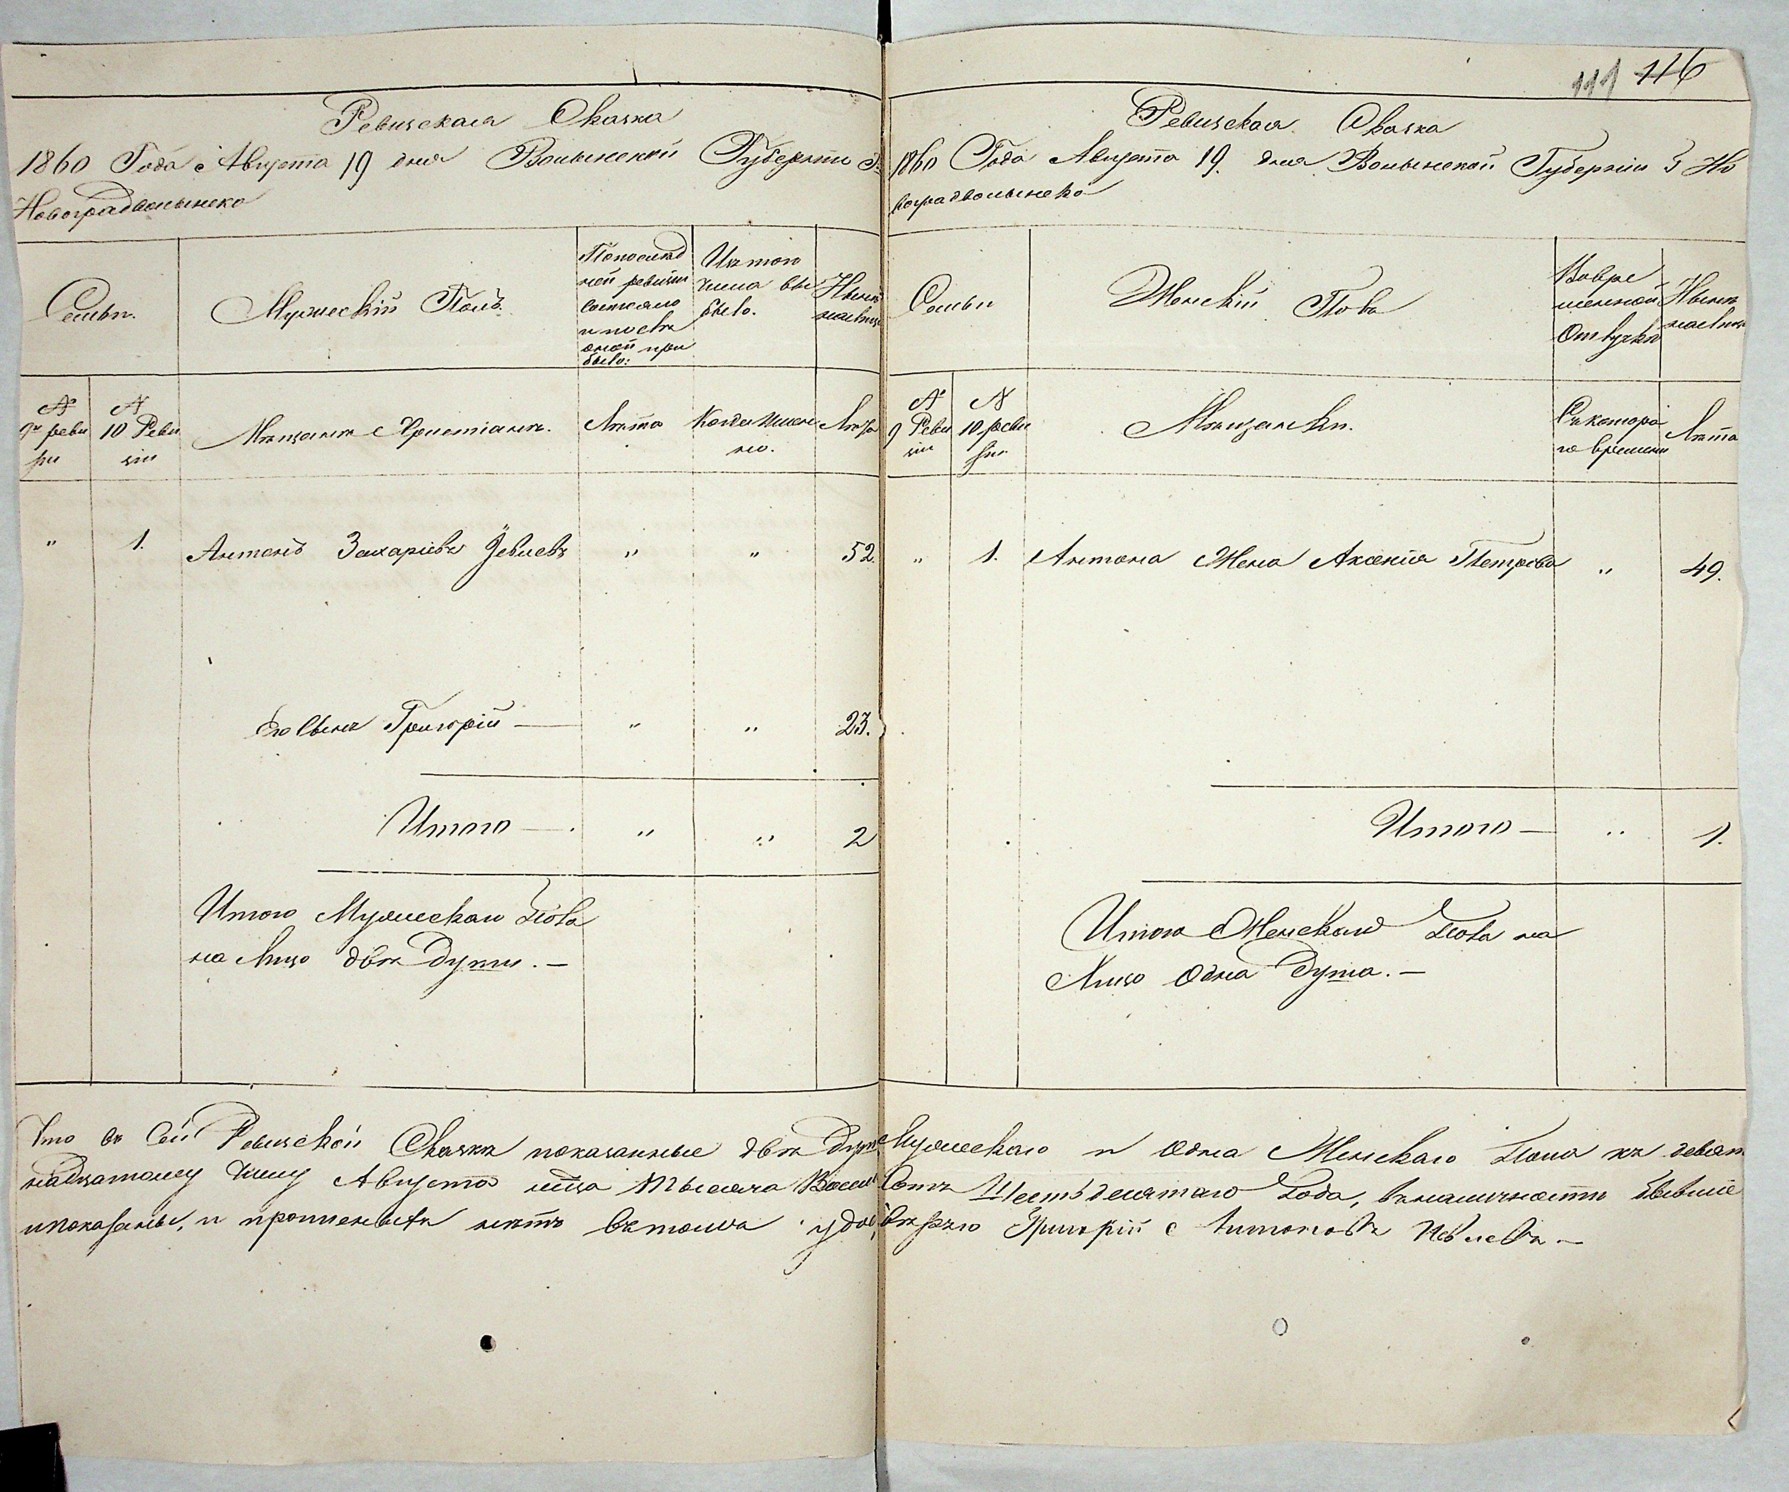 111 116
Ревизская Сказка
1860 Года Августа 19 дня Волынской Губерніи Г:
Новоградволынска
Семьи.
Мужескій Полъ.
По послед
ней ревизіи
состояло
и после
оной при
было:
Изъ того
числа вы
было.
Нынѣ
на лицо
№
9й реви
зіи
№
10 Реви
зіи
Мѣщанъ Христіанъ.
Лѣта
Когда имен
но.
Лѣта
" 1. Антонъ Захаріевъ " " 52.
Его Сынъ Григорій — " " 23.
Итого — " " 2
Итого Мужескаго Пола
на Лицо двѣ Души. —
Ревизская Сказка
1860 Года Августа 19. дня Волынской Губерніи Г Но
воградволынска
Семьи
Женскій Пола
Во вре
менной
Отлучкѣ
Нынѣ
на лицо
№
9 Реви
зіи
№
10 реви
зіи
Мѣщански.
Съ котора
го времени
Лѣта
" 1. Антона Жена Аксенія Петрова " 49.
Итого — " 1.
Итого Женскаго Пола на
Лицо Одна Душа. —
Что въ Сей Ревизской Сказкѣ показанные двѣ Души Мужескаго и Одна Женскаго Пола къ девят
надцатому Числу Августа мѣца Тысяча Восемь Сотъ Шестьдесятаго Года, въ наличности бывшіе
и показаны, и прописныхъ нѣтъ въ томъ Григорій Антоновъ —